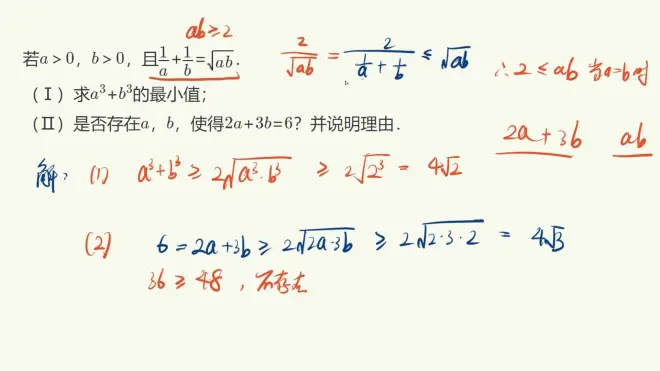 ab≥2
若a>0，b>0，且1/a+1/b=√ab.
2/√ab = 2/(1/a+1/b) ≤ √ab
∴2≤ab 当a=b时
（Ⅰ）求a³+b³的最小值；
（Ⅱ）是否存在a，b，使得2a+3b=6？并说明理由.
2a+3b ab
解：(1) a³+b³ ≥ 2√a³·b³ ≥ 2√2³ = 4√2
(2) 6=2a+3b ≥ 2√2a·3b ≥ 2√2·3·2 = 4√3
36≥48，不存在